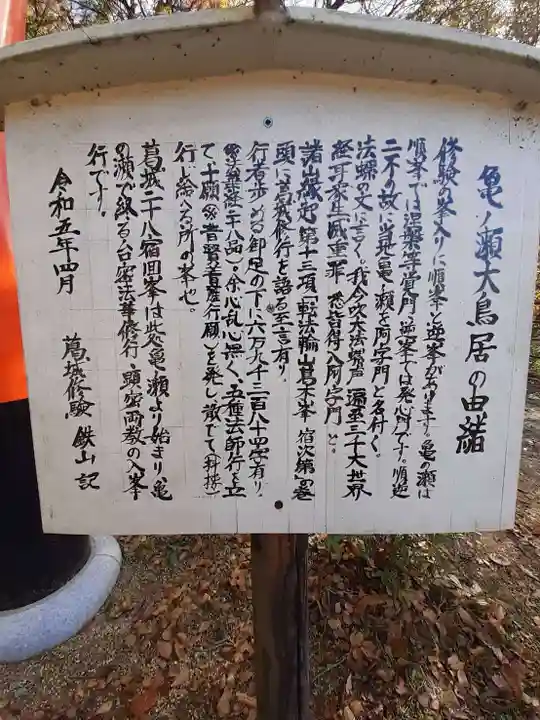 亀ノ瀬大鳥居の由緒
修験の峯入りに順峯と逆峯があります。亀の瀬は
順峯では涅槃等覚門、逆峯では発心門です。順逆
二不の故に当処亀ノ瀬を阿字門と名付く。
法螺の文に言く。我今吹大法螺声 遍至三千大世界
経耳衆生滅重罪 悉皆得入阿字門 と。
諸山縁起 第十三項「転法輪山葛木峯 宿次第」の巻
頭に葛城修行を語る至言有り。
行者歩める御足の下に六万九千三百八十四字有り。
(※法華経二十八品)。余心乱心無く、五種法師行を立
て十願(※普賢菩薩行願)を発し誠でて(料擇)
行じ給へる所の峯也。
葛城二十八宿回峯は此処亀ノ瀬より始まり、亀
の瀬で終る台密法華修行・顕密両教の入峯
行です。
令和五年四月 葛城修験 鉄山 記